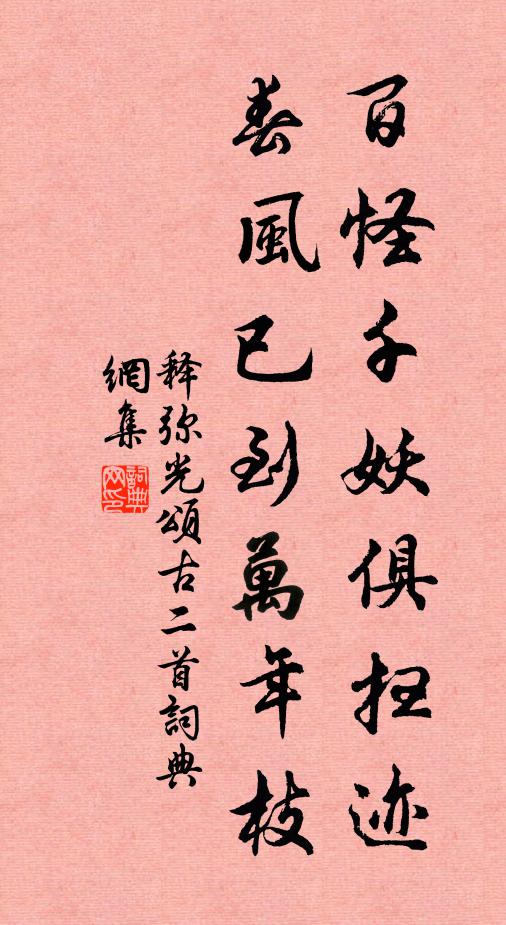 百怪千妖俱扫迹
春风已到萬年枝
释弥光頌古二首詞典
網集
詞典网印